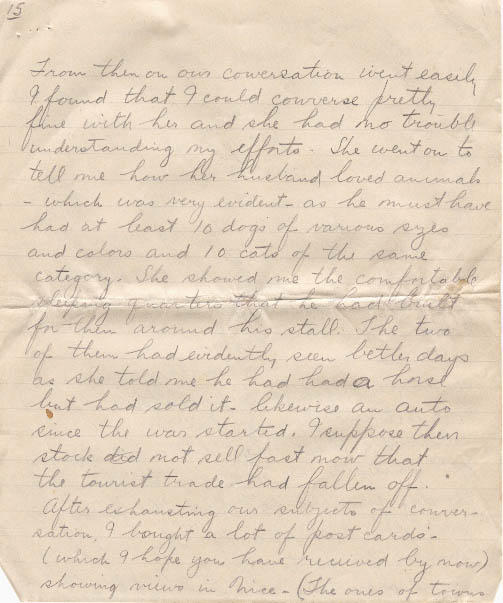 15
From then on our conversation went easily
I found that I could converse pretty
fine with her and she had no trouble
understanding my efforts. She went on to
tell me how her husband loved animals
- which was very evident - as he must have
had at least 10 dogs of various sizes
and colors and 10 cats of the same
category. She showed me the comfortable
sleeping quarters that he had built
for them around his stall. The two
of them had evidently seen better days
as she told me he had had a horse
but had sold it - likewise an auto
since the was started. I suppose their
stock did not sell fast now that
the tourist trade had fallen off.
After exhausting our subjects of conver-
sation, I bought a lot of post cards -
(which I hope you have received by now)
showing views in Nice - (The ones of towns